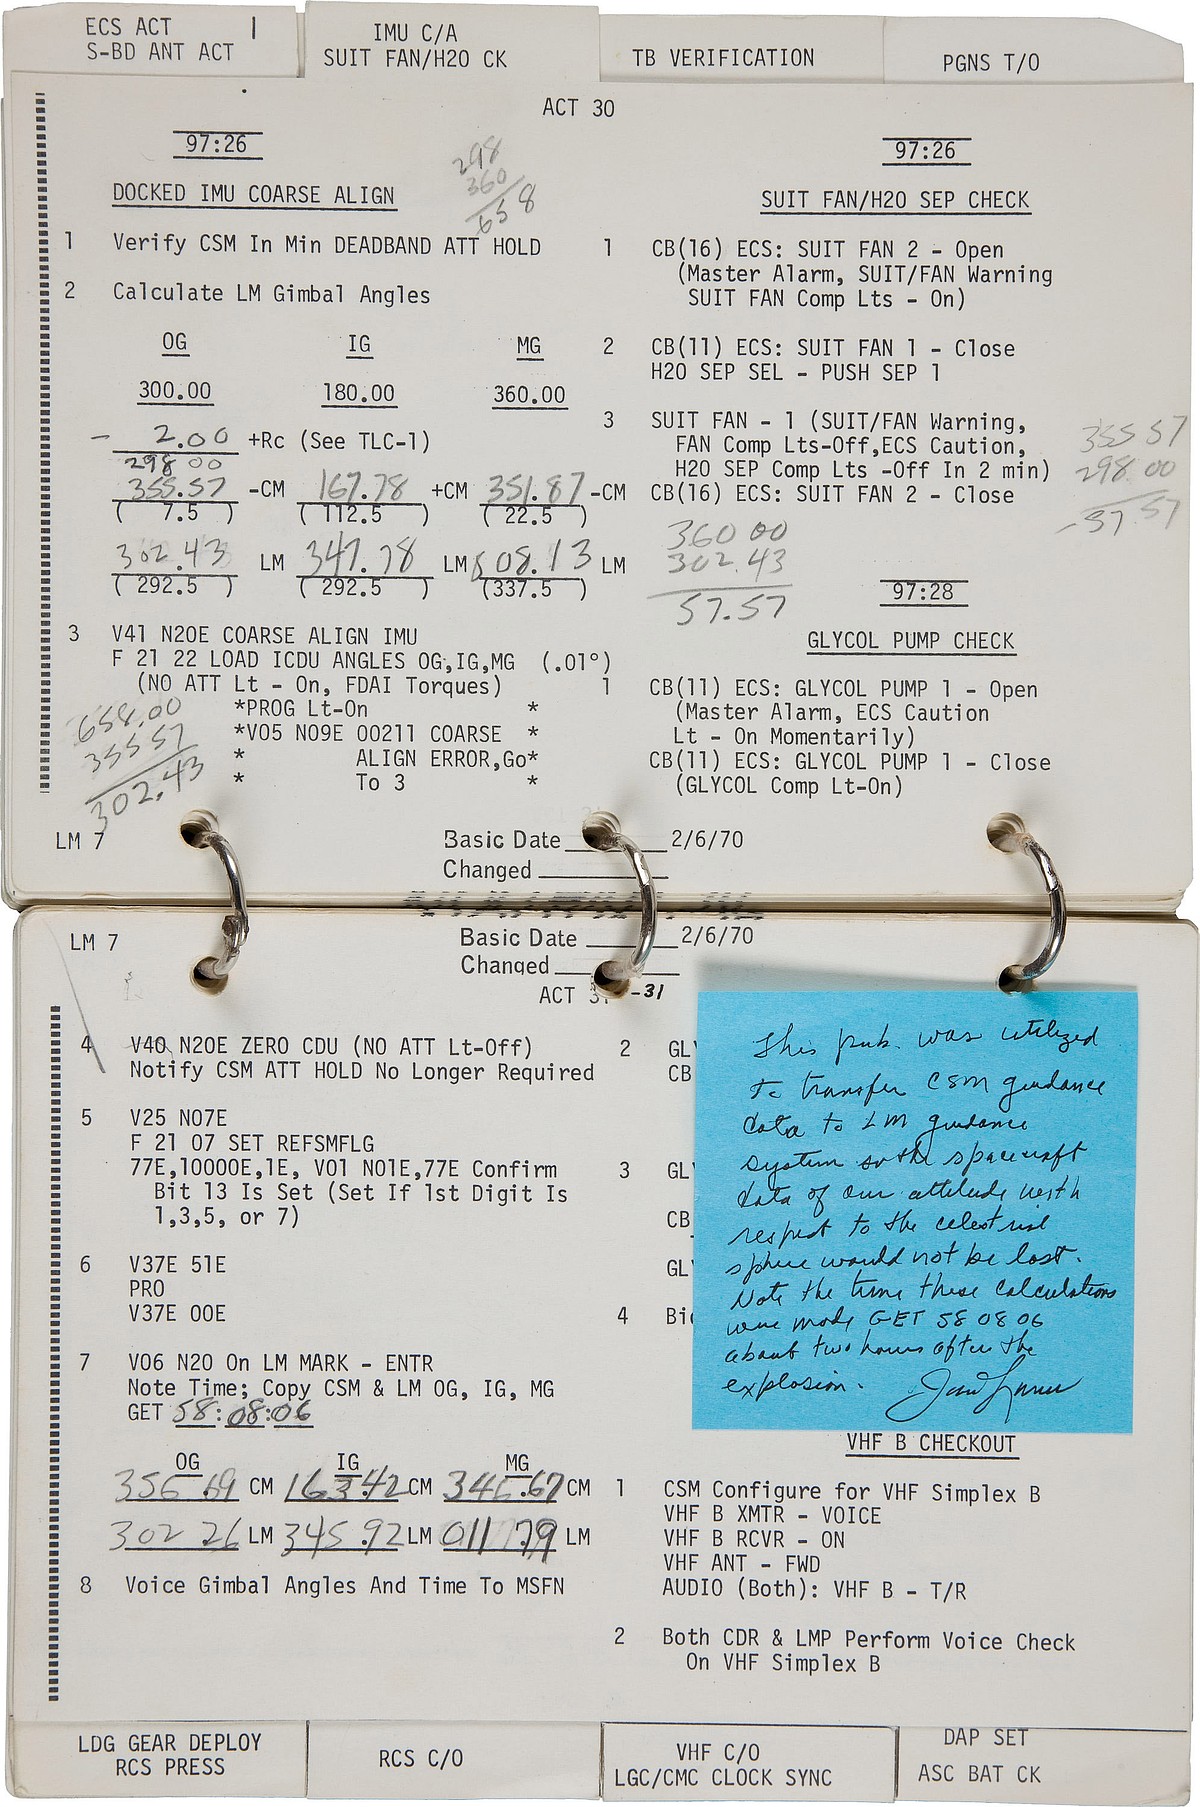 ECS ACT 1
S-BD ANT ACT
IMU C/A
SUIT FAN/H20 CK
TB VERIFICATION
PGNS T/O
ACT 30
97:26
298
360
658
DOCKED IMU COARSE ALIGN
1 Verify CSM In Min DEADBAND ATT HOLD
2 Calculate LM Gimbal Angles
OG IG MG
300.00 180.00 360.00
- 2.00 +Rc (See TLC-1)
298 00
355.57 -CM 167.78 +CM 351.87 -CM
( 7.5 ) ( 112.5 ) ( 22.5 )
302.43 LM 347.78 LM 008.13 LM
( 292.5 ) ( 292.5 ) (337.5 )
3 V41 N20E COARSE ALIGN IMU
F 21 22 LOAD ICDU ANGLES OG,IG,MG (.01°)
(NO ATT Lt - On, FDAI Torques)
*PROG Lt-On *
*V05 N09E 00211 COARSE *
* ALIGN ERROR,Go*
* To 3 *
658.00
355 57
302.43
97:26
SUIT FAN/H20 SEP CHECK
1 CB(16) ECS: SUIT FAN 2 - Open
(Master Alarm, SUIT/FAN Warning
SUIT FAN Comp Lts - On)
2 CB(11) ECS: SUIT FAN 1 - Close
H20 SEP SEL - PUSH SEP 1
3 SUIT FAN - 1 (SUIT/FAN Warning,
FAN Comp Lts-Off,ECS Caution,
H20 SEP Comp Lts -Off In 2 min)
CB(16) ECS: SUIT FAN 2 - Close
355 57
298.00
-57.57
360 00
302.43
57.57
97:28
GLYCOL PUMP CHECK
1 CB(11) ECS: GLYCOL PUMP 1 - Open
(Master Alarm, ECS Caution
Lt - On Momentarily)
CB(11) ECS: GLYCOL PUMP 1 - Close
(GLYCOL Comp Lt-On)
LM 7
Basic Date 2/6/70
Changed
LM 7
Basic Date 2/6/70
Changed
ACT 31 -31
4 V40 N20E ZERO CDU (NO ATT Lt-Off)
Notify CSM ATT HOLD No Longer Required
5 V25 N07E
F 21 07 SET REFSMFLG
77E,10000E,1E, V01 N01E,77E Confirm
Bit 13 Is Set (Set If 1st Digit Is
1,3,5, or 7)
6 V37E 51E
PRO
V37E 00E
7 V06 N20 On LM MARK - ENTR
Note Time; Copy CSM & LM OG, IG, MG
GET 58:08:06
OG IG MG
356 69 CM 163.42 CM 346.67 CM
302 26 LM 345.92 LM 011 79 LM
8 Voice Gimbal Angles And Time To MSFN
2 GLY
CB
3 GLY
CB
GLY
4 Bio
This pub. was utilized
to transfer CSM guidance
data to LM guidance
system so the spacecraft
data of our attitude with
respect to the celestrial
sphere would not be lost.
Note the time these calculations
were made GET 58 08 06
about two hours after the
explosion. James Lovell
VHF B CHECKOUT
1 CSM Configure for VHF Simplex B
VHF B XMTR - VOICE
VHF B RCVR - ON
VHF ANT - FWD
AUDIO (Both): VHF B - T/R
2 Both CDR & LMP Perform Voice Check
On VHF Simplex B
LDG GEAR DEPLOY
RCS PRESS
RCS C/O
VHF C/O
LGC/CMC CLOCK SYNC
DAP SET
ASC BAT CK